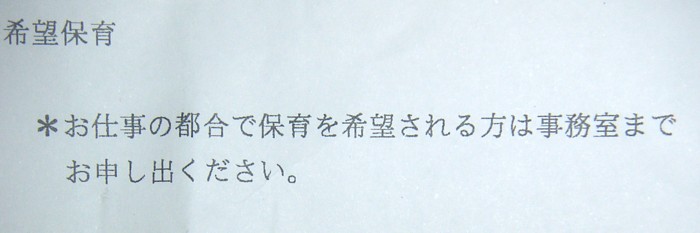 希望保育
＊お仕事の都合で保育を希望される方は事務室まで
お申し出ください。